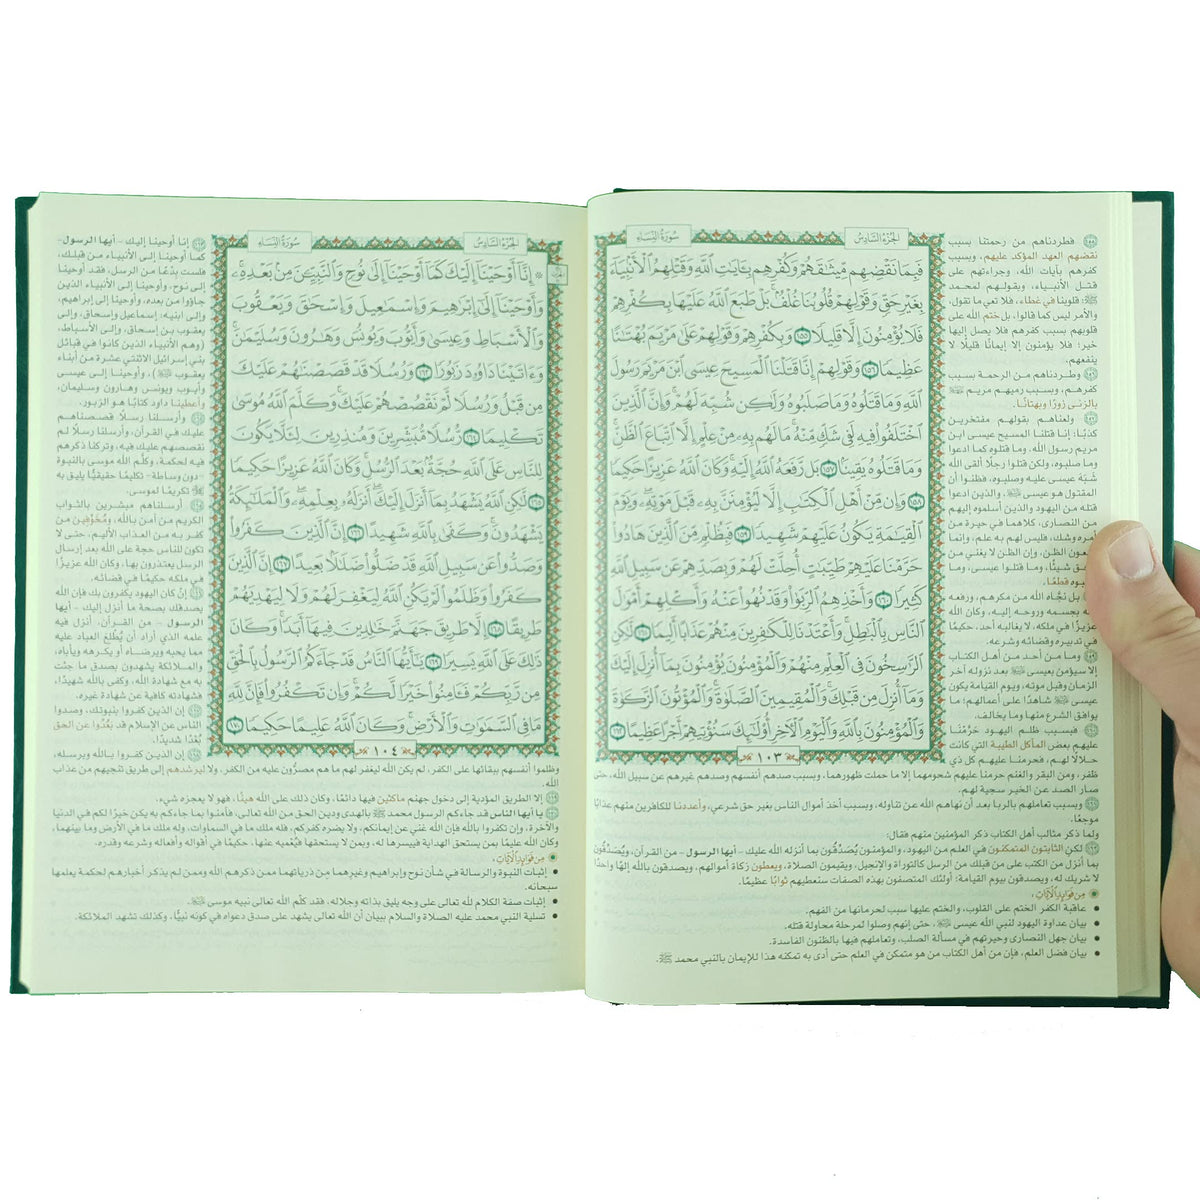 سُورَةُ النِّسَاءِ
الجُزْءُ السَّادِسُ
فَبِمَا نَقْضِهِم مِّيثَٰقَهُمْ وَكُفْرِهِم بِـَٔايَٰتِ ٱللَّهِ وَقَتْلِهِمُ ٱلْأَنۢبِيَآءَ
بِغَيْرِ حَقٍّ وَقَوْلِهِمْ قُلُوبُنَا غُلْفٌۢ ۚ بَلْ طَبَعَ ٱللَّهُ عَلَيْهَا بِكُفْرِهِمْ
فَلَا يُؤْمِنُونَ إِلَّا قَلِيلًا ١٥٥ وَبِكُفْرِهِمْ وَقَوْلِهِمْ عَلَىٰ مَرْيَمَ بُهْتَٰنًا
عَظِيمًا ١٥٦ وَقَوْلِهِمْ إِنَّا قَتَلْنَا ٱلْمَسِيحَ عِيسَى ٱبْنَ مَرْيَمَ رَسُولَ
ٱللَّهِ وَمَا قَتَلُوهُ وَمَا صَلَبُوهُ وَلَٰكِن شُبِّهَ لَهُمْ ۚ وَإِنَّ ٱلَّذِينَ
ٱخْتَلَفُوا۟ فِيهِ لَفِى شَكٍّ مِّنْهُ ۚ مَا لَهُم بِهِۦ مِنْ عِلْمٍ إِلَّا ٱتِّبَاعَ ٱلظَّنِّ ۚ
وَمَا قَتَلُوهُ يَقِينًۢا ١٥٧ بَل رَّفَعَهُ ٱللَّهُ إِلَيْهِ ۚ وَكَانَ ٱللَّهُ عَزِيزًا حَكِيمًا
١٥٨ وَإِن مِّنْ أَهْلِ ٱلْكِتَٰبِ إِلَّا لَيُؤْمِنَنَّ بِهِۦ قَبْلَ مَوْتِهِۦ ۖ وَيَوْمَ
ٱلْقِيَٰمَةِ يَكُونُ عَلَيْهِمْ شَهِيدًا ١٥٩ فَبِظُلْمٍ مِّنَ ٱلَّذِينَ هَادُوا۟
حَرَّمْنَا عَلَيْهِمْ طَيِّبَٰتٍ أُحِلَّتْ لَهُمْ وَبِصَدِّهِمْ عَن سَبِيلِ ٱللَّهِ
كَثِيرًا ١٦٠ وَأَخْذِهِمُ ٱلرِّبَوٰا۟ وَقَدْ نُهُوا۟ عَنْهُ وَأَكْلِهِمْ أَمْوَٰلَ
ٱلنَّاسِ بِٱلْبَٰطِلِ ۚ وَأَعْتَدْنَا لِلْكَٰفِرِينَ مِنْهُمْ عَذَابًا أَلِيمًا ١٦١ لَّٰكِنِ
ٱلرَّٰسِخُونَ فِى ٱلْعِلْمِ مِنْهُمْ وَٱلْمُؤْمِنُونَ يُؤْمِنُونَ بِمَآ أُنزِلَ إِلَيْكَ
وَمَآ أُنزِلَ مِن قَبْلِكَ ۚ وَٱلْمُقِيمِينَ ٱلصَّلَوٰةَ ۚ وَٱلْمُؤْتُونَ ٱلزَّكَوٰةَ
وَٱلْمُؤْمِنُونَ بِٱللَّهِ وَٱلْيَوْمِ ٱلْءَاخِرِ أُو۟لَٰٓئِكَ سَنُؤْتِيهِمْ أَجْرًا عَظِيمًا ١٦٢
١٠٣
فطردناهم من رحمتنا بسبب
نقضهم العهد المؤكد عليهم، وبسبب
كفرهم بآيات الله، وجراءتهم على
قتل الأنبياء، وبقولهم لمحمد
ﷺ: قلوبنا في غطاء، فلا تعي ما تقول،
والأمر ليس كما قالوا، بل ختم الله على
قلوبهم بسبب كفرهم فلا يصل إليها
خير؛ فلا يؤمنون إلا إيمانًا قليلًا لا
ينفعهم.
وطردناهم من الرحمة بسبب
كفرهم، وبسبب رميهم مريم
بالزنى زورًا وبهتانًا.
ولعناهم بقولهم مفتخرين
كذبًا: إنا قتلنا المسيح عيسى ابن
مريم رسول الله، وما قتلوه كما ادعوا
وما صلبوه، ولكن قتلوا رجلًا ألقى الله
شَبَه عيسى عليه وصلبوه، فظنوا أن
المقتول هو عيسى، والذين ادعوا
قتله من اليهود والذين أسلموه إليهم
من النصارى، كلاهما في حيرة من
أمره وشك، فليس لهم به علم، وإنما
الظن، وإن الظن لا يغني من
شيئًا، وما قتلوا عيسى، وما
قطعًا.
بل نجَّاه الله من مكرهم، ورفعه
بجسمه وروحه إليه، وكان الله
عزيزًا في ملكه، لا يغالبه أحد، حكيمًا
في تدبيره وقضائه وشرعه.
وما من أحد من أهل الكتاب
إلا سيؤمن بعيسى بعد نزوله آخر
الزمان وقبل موته، ويوم القيامة يكون
عيسى شاهدًا على أعمالهم؛ ما
يوافق الشرع منها وما يخالف.
فبسبب ظلم اليهود حرَّمْنا
عليهم بعض المآكل الطيبة التي كانت
حلالًا لهم، فحرمنا عليهم كل ذي
ظفر، ومن البقر والغنم حرمنا عليهم شحومهما إلا ما حملت ظهورهما، وبسبب صدهم أنفسهم وصدهم غيرهم عن سبيل الله، حتى
صار الصد عن الخير سجية لهم.
وبسبب تعاملهم بالربا بعد أن نهاهم الله عن تناوله، وبسبب أخذ أموال الناس بغير حق شرعي، وأعددنا للكافرين منهم عذابًا
موجعًا.
ولما ذكر مثالب أهل الكتاب ذكر المؤمنين منهم فقال:
لكن الثابتون المتمكنون في العلم من اليهود، والمؤمنون يُصَدِّقُون بما أنزله الله عليك - أيها الرسول - من القرآن، ويُصَدِّقُون
بما أنزل من الكتب على من قبلك من الرسل كالتوراة والإنجيل، ويقيمون الصلاة، ويعطون زكاة أموالهم، ويصدقون بالله إلهًا واحدًا
لا شريك له، ويصدقون بيوم القيامة؛ أولئك المتصفون بهذه الصفات سنعطيهم ثوابًا عظيمًا.
مِن فَوَائِدِ الآيَاتِ:
• عاقبة الكفر الختم على القلوب، والختم عليها سبب لحرمانها من الفهم.
• بيان عداوة اليهود لنبي الله عيسى، حتى إنهم وصلوا لمرحلة محاولة قتله.
• بيان جهل النصارى وحيرتهم في مسألة الصلب، وتعاملهم فيها بالظنون الفاسدة.
• بيان فضل العلم، فإن من أهل الكتاب من هو متمكن في العلم حتى أدى به تمكنه هذا للإيمان بالنبي محمد ﷺ.
الجُزْءُ السَّادِسُ
سُورَةُ النِّسَاءِ
۞ إِنَّآ أَوْحَيْنَآ إِلَيْكَ كَمَآ أَوْحَيْنَآ إِلَىٰ نُوحٍ وَٱلنَّبِيِّـۧنَ مِنۢ بَعْدِهِۦ ۚ
وَأَوْحَيْنَآ إِلَىٰٓ إِبْرَٰهِيمَ وَإِسْمَٰعِيلَ وَإِسْحَٰقَ وَيَعْقُوبَ
وَٱلْأَسْبَاطِ وَعِيسَىٰ وَأَيُّوبَ وَيُونُسَ وَهَٰرُونَ وَسُلَيْمَٰنَ ۚ
وَءَاتَيْنَا دَاوُۥدَ زَبُورًا ١٦٣ وَرُسُلًا قَدْ قَصَصْنَٰهُمْ عَلَيْكَ
مِن قَبْلُ وَرُسُلًا لَّمْ نَقْصُصْهُمْ عَلَيْكَ ۚ وَكَلَّمَ ٱللَّهُ مُوسَىٰ
تَكْلِيمًا ١٦٤ رُّسُلًا مُّبَشِّرِينَ وَمُنذِرِينَ لِئَلَّا يَكُونَ
لِلنَّاسِ عَلَى ٱللَّهِ حُجَّةٌۢ بَعْدَ ٱلرُّسُلِ ۚ وَكَانَ ٱللَّهُ عَزِيزًا حَكِيمًا
١٦٥ لَّٰكِنِ ٱللَّهُ يَشْهَدُ بِمَآ أَنزَلَ إِلَيْكَ ۖ أَنزَلَهُۥ بِعِلْمِهِۦ ۖ وَٱلْمَلَٰٓئِكَةُ
يَشْهَدُونَ ۚ وَكَفَىٰ بِٱللَّهِ شَهِيدًا ١٦٦ إِنَّ ٱلَّذِينَ كَفَرُوا۟
وَصَدُّوا۟ عَن سَبِيلِ ٱللَّهِ قَدْ ضَلُّوا۟ ضَلَٰلًۢا بَعِيدًا ١٦٧ إِنَّ ٱلَّذِينَ
كَفَرُوا۟ وَظَلَمُوا۟ لَمْ يَكُنِ ٱللَّهُ لِيَغْفِرَ لَهُمْ وَلَا لِيَهْدِيَهُمْ
طَرِيقًا ١٦٨ إِلَّا طَرِيقَ جَهَنَّمَ خَٰلِدِينَ فِيهَآ أَبَدًا ۚ وَكَانَ
ذَٰلِكَ عَلَى ٱللَّهِ يَسِيرًا ١٦٩ يَٰٓأَيُّهَا ٱلنَّاسُ قَدْ جَآءَكُمُ ٱلرَّسُولُ بِٱلْحَقِّ
مِن رَّبِّكُمْ فَـَٔامِنُوا۟ خَيْرًا لَّكُمْ ۚ وَإِن تَكْفُرُوا۟ فَإِنَّ لِلَّهِ
مَا فِى ٱلسَّمَٰوَٰتِ وَٱلْأَرْضِ ۚ وَكَانَ ٱللَّهُ عَلِيمًا حَكِيمًا ١٧٠
١٠٤
إنا أوحينا إليك - أيها الرسول -
كما أوحينا إلى الأنبياء من قبلك،
فلست بدْعًا من الرسل، فقد أوحينا
إلى نوح، وأوحينا إلى الأنبياء الذين
جاؤوا من بعده، وأوحينا إلى إبراهيم،
وإلى ابنيه: إسماعيل وإسحاق، وإلى
يعقوب بن إسحاق، وإلى الأسباط،
(وهم الأنبياء الذين كانوا في قبائل
بني إسرائيل الاثنتي عشرة من أبناء
يعقوب)، وأوحينا إلى عيسى
وأيوب ويونس وهارون وسليمان،
وأعطينا داود كتابًا هو الزبور.
وأرسلنا رسلًا قصصناهم
عليك في القرآن، وأرسلنا رسلًا لم
نقصصهم عليك فيه، وتركنا ذكرهم
فيه لحكمة، وكلَّم الله موسى بالنبوة
-دون وساطة- تكليمًا حقيقيًّا يليق به
تكريمًا لموسى.
أرسلناهم مبشرين بالثواب
الكريم من آمن بالله، ومُخَوِّفين من
كفر به من العذاب الأليم، حتى لا
تكون للناس حجة على الله بعد إرسال
الرسل يعتذرون بها، وكان الله عزيزًا
في ملكه حكيمًا في قضائه.
إنْ كان اليهود يكفرون بك فإن الله
يصدقك بصحة ما أنزل إليك - أيها
الرسول - من القرآن، أنزل فيه
علمه الذي أراد أن يُطْلع العباد عليه
مما يحبه ويرضاه أو يكرهه ويأباه،
والملائكة يشهدون بصدق ما جئت
به مع شهادة الله، وكفى بالله شهيدًا،
فشهادته كافية عن شهادة غيره.
إن الذين كفروا بنبوتك، وصدوا
الناس عن الإسلام قد بعُدُوا عن الحق
بُعْدًا شديدًا.
إن الذين كفروا بالله وبرسله،
وظلموا أنفسهم ببقائها على الكفر، لم يكن الله ليغفر لهم ما هم مصرُّون عليه من الكفر، ولا ليرشدهم إلى طريق تنجيهم من عذاب
الله.
إلا الطريق المؤدية إلى دخول جهنم ماكثين فيها دائمًا، وكان ذلك على الله هينًا، فهو لا يعجزه شيء.
يا أيها الناس قد جاءكم الرسول محمد ﷺ بالهدى ودين الحق من الله تعالى، فآمنوا بما جاءكم به يكن خيرًا لكم في الدنيا
والآخرة، وإن تكفروا بالله فإن الله غني عن إيمانكم، ولا يضره كفركم، فله ملك ما في السماوات، وله ملك ما في الأرض وما بينهما،
وكان الله عليمًا بمن يستحق الهداية فييسرها له، وبمن لا يستحقها فيُعميه عنها، حكيمًا في أقواله وأفعاله وشرعه وقدره.
مِن فَوَائِدِ الآيَاتِ:
• إثبات النبوة والرسالة في شأن نوح وإبراهيم وغيرهما من ذرياتهما ممن ذكرهم الله وممن لم يذكر أخبارهم لحكمة يعلمها
سبحانه.
• إثبات صفة الكلام لله تعالى على وجه يليق بذاته وجلاله، فقد كلَّم الله تعالى نبيه موسى.
• تسلية النبي محمد عليه الصلاة والسلام ببيان أن الله تعالى يشهد على صدق دعواه في كونه نبيًّا، وكذلك تشهد الملائكة.